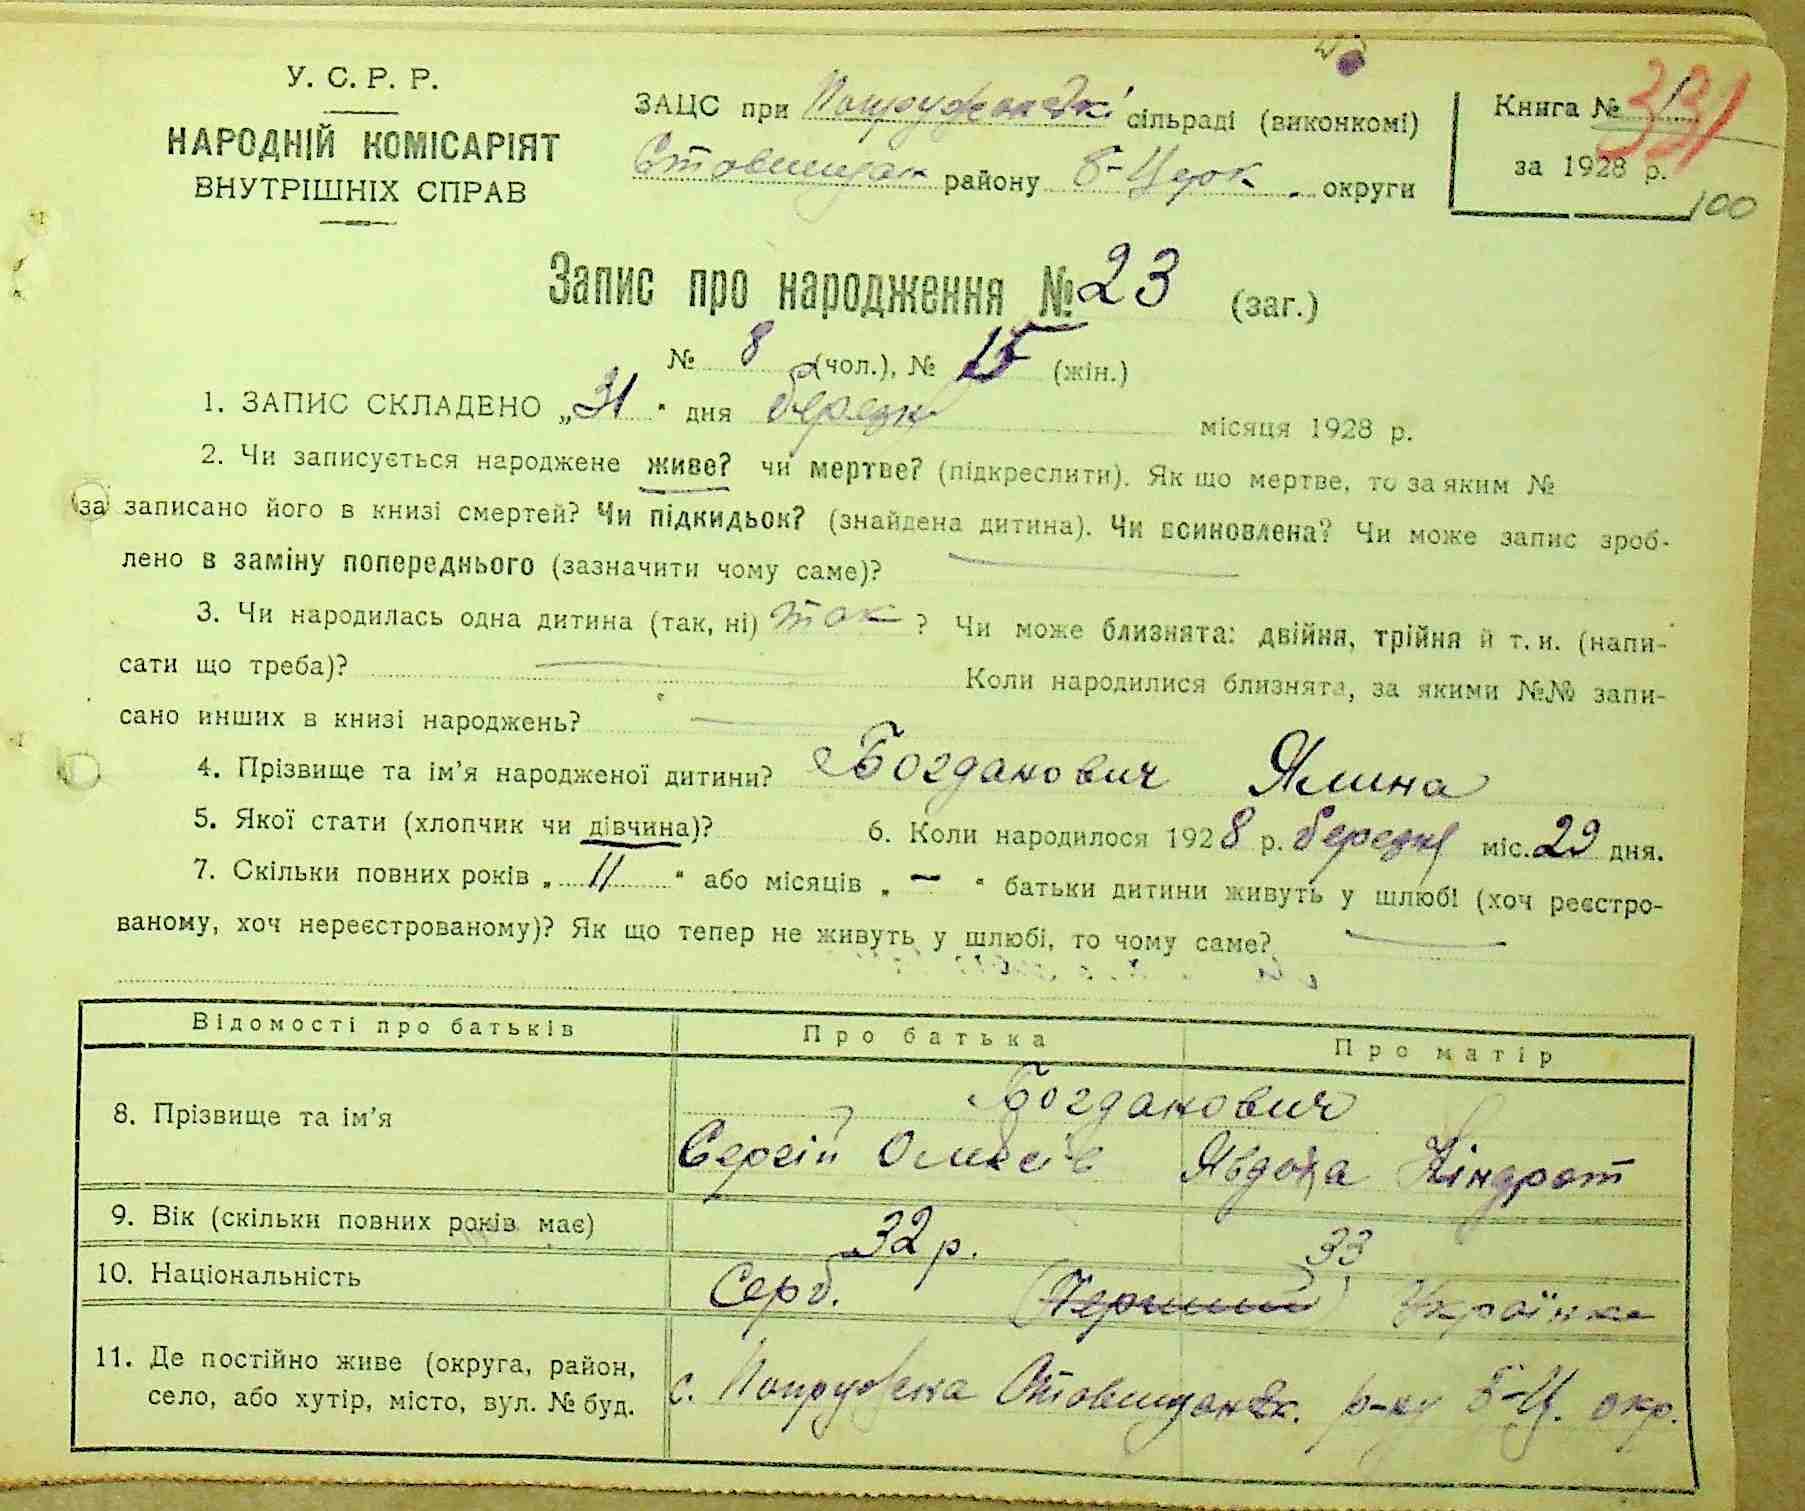 У. С. Р. Р.
НАРОДНІЙ КОМІСАРІЯТ
ВНУТРІШНІХ СПРАВ
ЗАЦС при сільраді (виконкомі)
району Б-Церк. округи
Книга № 1
331
за 1928 р.
100
Запис про народження № 23 (заг.)
№ 8 (чол.), № 15 (жін.)
1. ЗАПИС СКЛАДЕНО „31“ дня березня місяця 1928 р.
2. Чи записується народжене живе? чи мертве? (підкреслити). Як що мертве, то за яким №
за записано його в книзі смертей? Чи підкидьок? (знайдена дитина). Чи всиновлена? Чи може запис зроб-
лено в заміну попереднього (зазначити чому саме)?
3. Чи народилась одна дитина (так, ні) так ? Чи може близнята: двійня, трійня й т. и. (напи-
сати що треба)? Коли народилися близнята, за якими №№ запи-
сано инших в книзі народжень?
4. Прізвище та ім’я народженої дитини? Богданович Ялина
5. Якої стати (хлопчик чи дівчина)? 6. Коли народилося 1928 р. березня міс. 29 дня.
7. Скільки повних років „ 11 “ або місяців „ — “ батьки дитини живуть у шлюбі (хоч реєстро-
ваному, хоч нереєстрованому)? Як що тепер не живуть у шлюбі, то чому саме?
Відомості про батьків Про батька Про матір
Богданович
8. Прізвище та ім’я Сергій Олексів Явдоха Кіндрат
9. Вік (скільки повних років має) 32 р. 33
10. Національність Серб. Українка
11. Де постійно живе (округа, район,
село, або хутір, місто, вул. № буд. с. Попружна р-ну Б-Ц. окр.